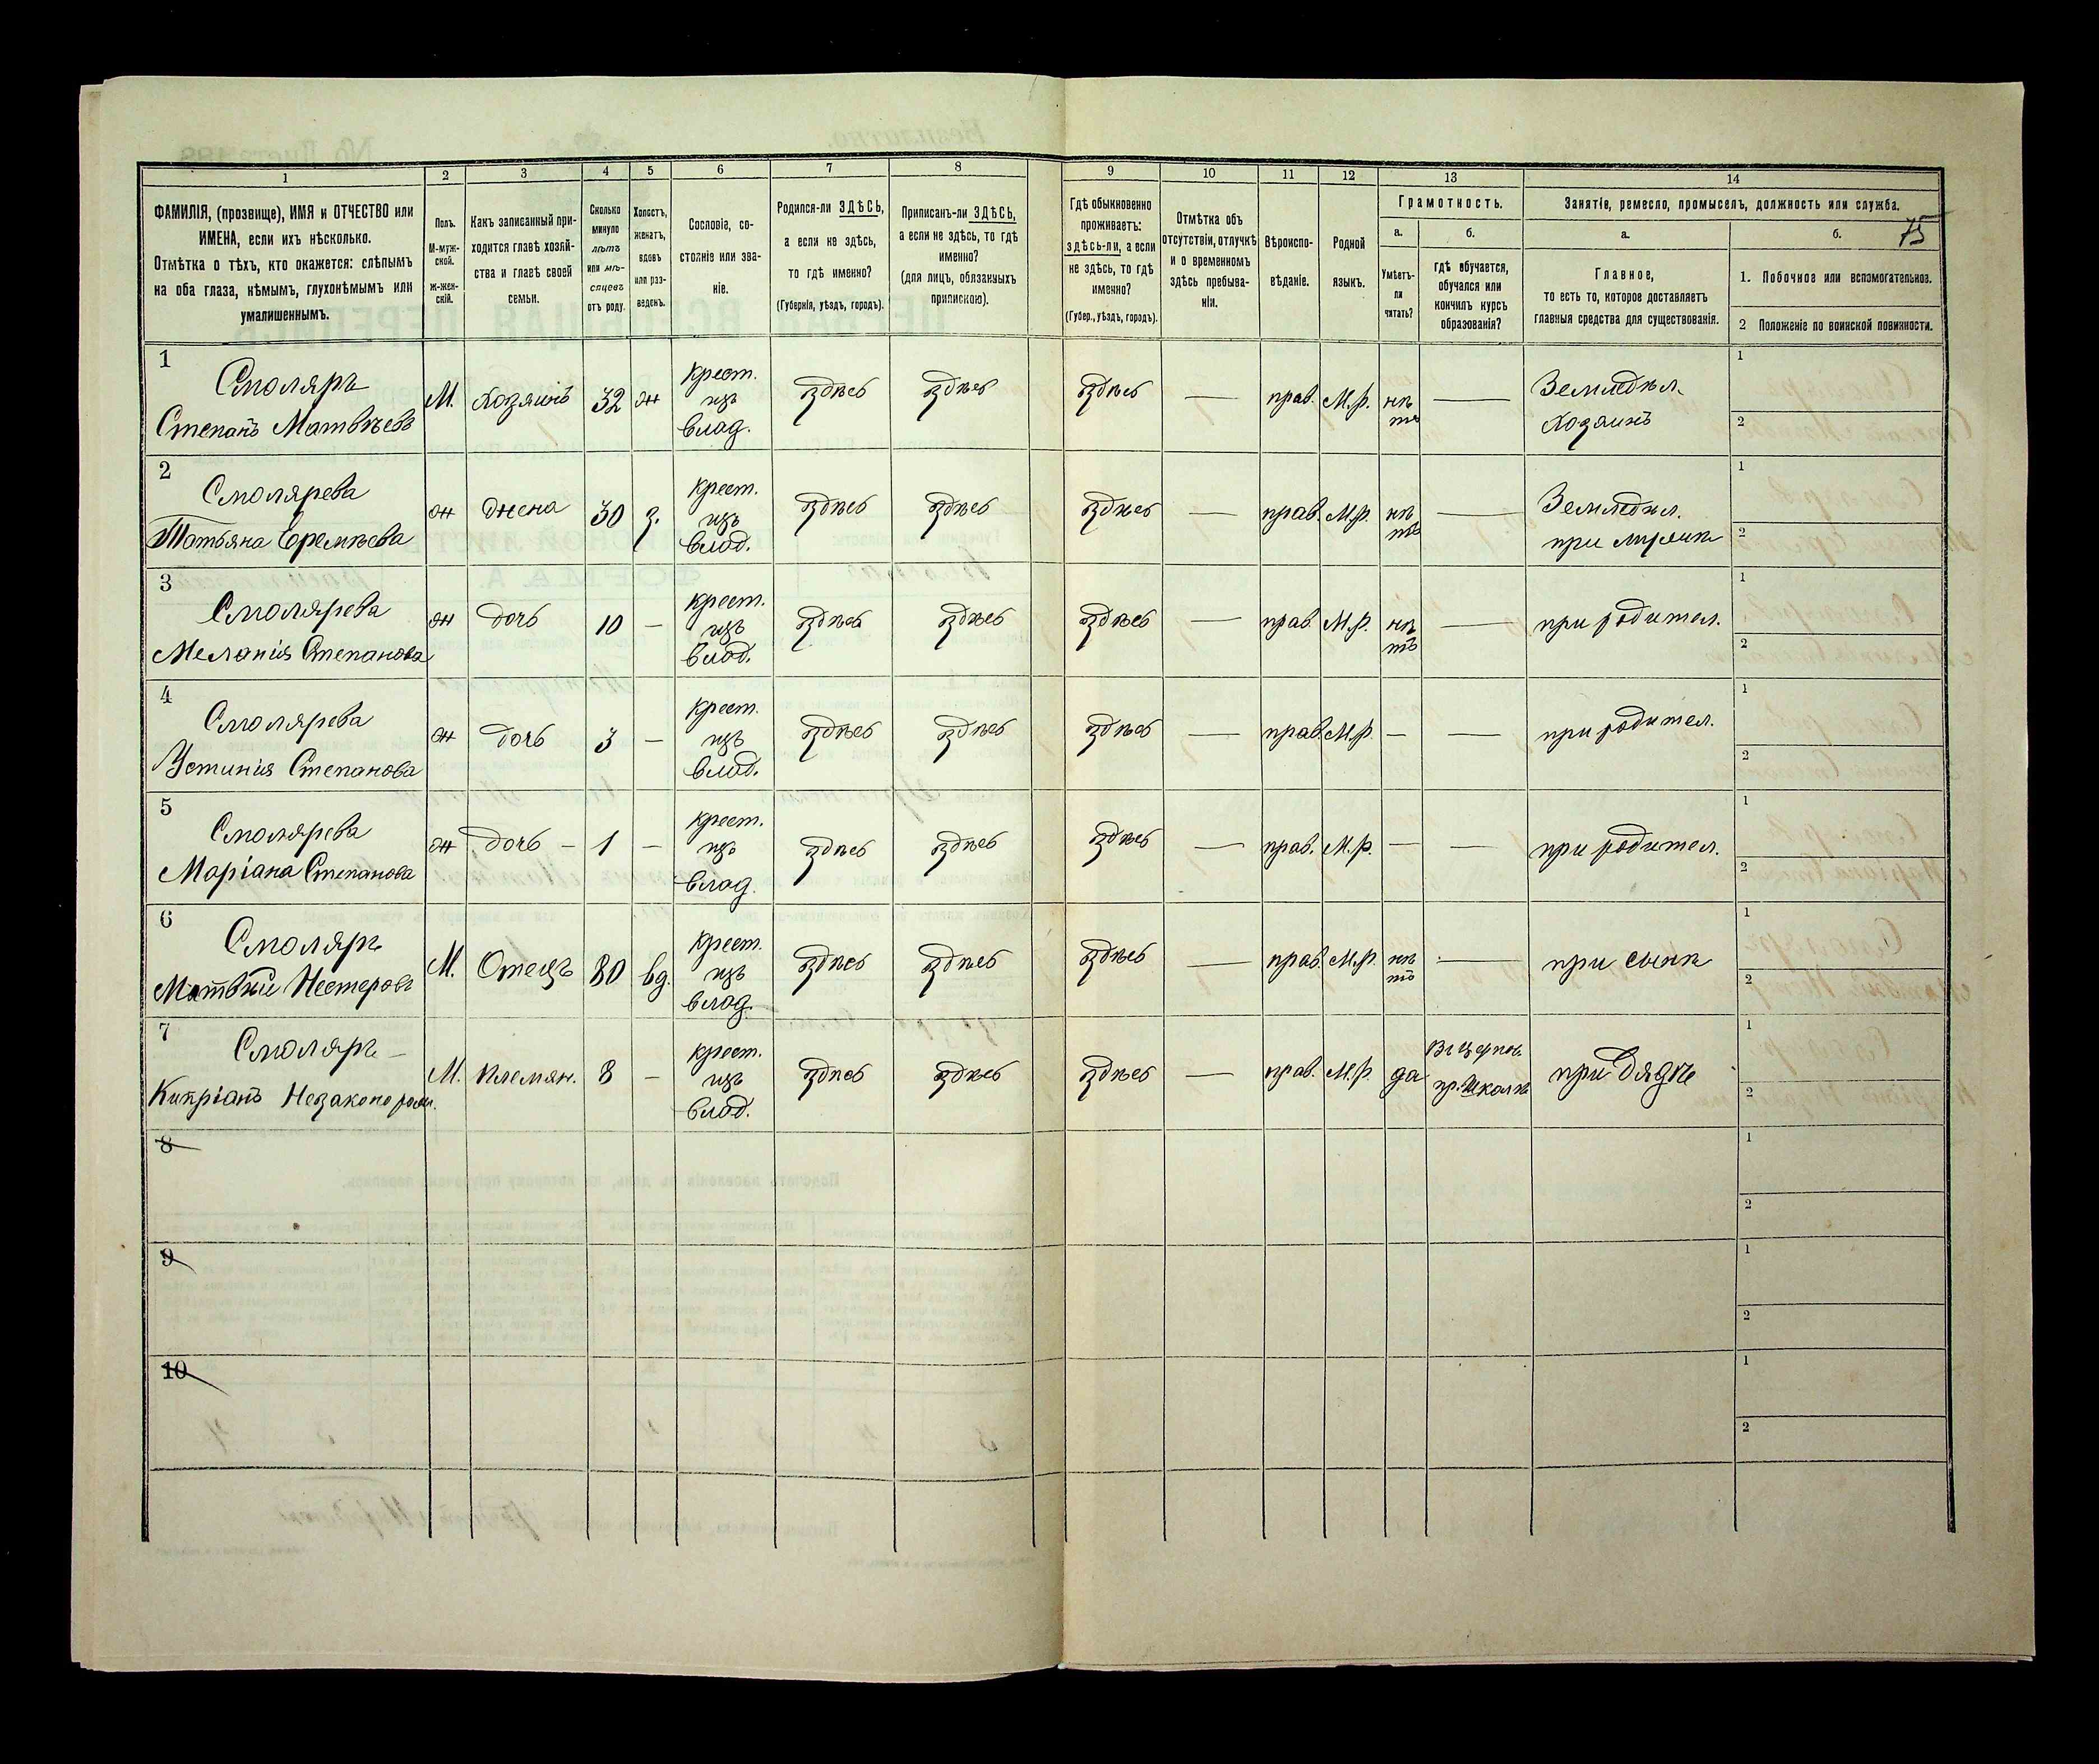 75
1 2 3 4 5 6 7 8 9 10 11 12 13 14
ФАМИЛІЯ, (прозвище), ИМЯ и ОТЧЕСТВО или
ИМЕНА, если ихъ нѣсколько.
Отмѣтка о тѣхъ, кто окажется: слѣпымъ
на оба глаза, нѣмымъ, глухонѣмымъ или
умалишеннымъ.
Полъ.
М-муж-
ской.
Ж-жен-
скій.
Какъ записанный при-
ходится главѣ хозяй-
ства и главѣ своей
семьи.
Сколько
минуло
лѣтъ
или мѣ-
сяцевъ
отъ роду.
Холостъ,
женатъ,
вдовъ
или раз-
веденъ.
Сословіе, со-
стояніе или зва-
ніе.
Родился-ли ЗДѢСЬ,
а если не здѣсь,
то гдѣ именно?
(Губернія, уѣздъ, городъ).
Приписанъ-ли ЗДѢСЬ,
а если не здѣсь, то гдѣ
именно?
(для лицъ, обязанныхъ
припискою).
Гдѣ обыкновенно
проживаетъ:
здѣсь-ли, а если
не здѣсь, то гдѣ
именно?
(Губер., уѣздъ, городъ).
Отмѣтка объ
отсутствіи, отлучкѣ
и о временномъ
здѣсь пребыва-
ніи.
Вѣроиспо-
вѣданіе.
Родной
языкъ.
Грамотность.
а.
Умѣетъ-
ли
читать?
б.
гдѣ обучается,
обучался или
кончилъ курсъ
образованія?
Занятіе, ремесло, промыселъ, должность или служба.
а.
Главное,
то есть то, которое доставляетъ
главныя средства для существованія.
б.
1. Побочное или вспомогательное.
2 Положеніе по воинской повинности.
1
Смоляръ
Степанъ Матвѣевъ
М. хозяинъ 32 ж
крест.
изъ
влад.
здѣсь здѣсь здѣсь — прав. М.р.
нѣ
тъ
—
Земледѣл.
хозяинъ
1
2
2
Смолярева
Татьяна Еремѣева
ж жена 30 з.
крест.
изъ
влад.
здѣсь здѣсь здѣсь — прав. М.р.
нѣ
тъ
—
Земледѣл.
при мужѣ
1
2
3
Смолярева
Меланія Степанова
ж дочь 10 —
крест.
изъ
влад.
здѣсь здѣсь здѣсь — прав. М.р.
нѣ
тъ
—
при родител.
1
2
4
Смолярева
Устинія Степанова
ж дочь 3 —
крест.
изъ
влад.
здѣсь здѣсь здѣсь — прав. М.р. — —
при родител.
1
2
5
Смолярева
Маріана Степанова
ж дочь — 1 —
крест.
изъ
влад.
здѣсь здѣсь здѣсь — прав. М.р. — —
при родител.
1
2
6
Смоляръ
Матвѣй Нестеровъ
М. Отецъ 80 вд.
крест.
изъ
влад.
здѣсь здѣсь здѣсь — прав. М.р.
нѣ
тъ
—
при сынѣ
1
2
7
Смоляръ —
Кипріанъ Незаконорож.
М. племян. 8 —
крест.
изъ
влад.
здѣсь здѣсь здѣсь — прав. М.р. да
въ церков.
пр. школѣ
при Дядѣ
1
2
8
1
2
9
1
2
10
1
2